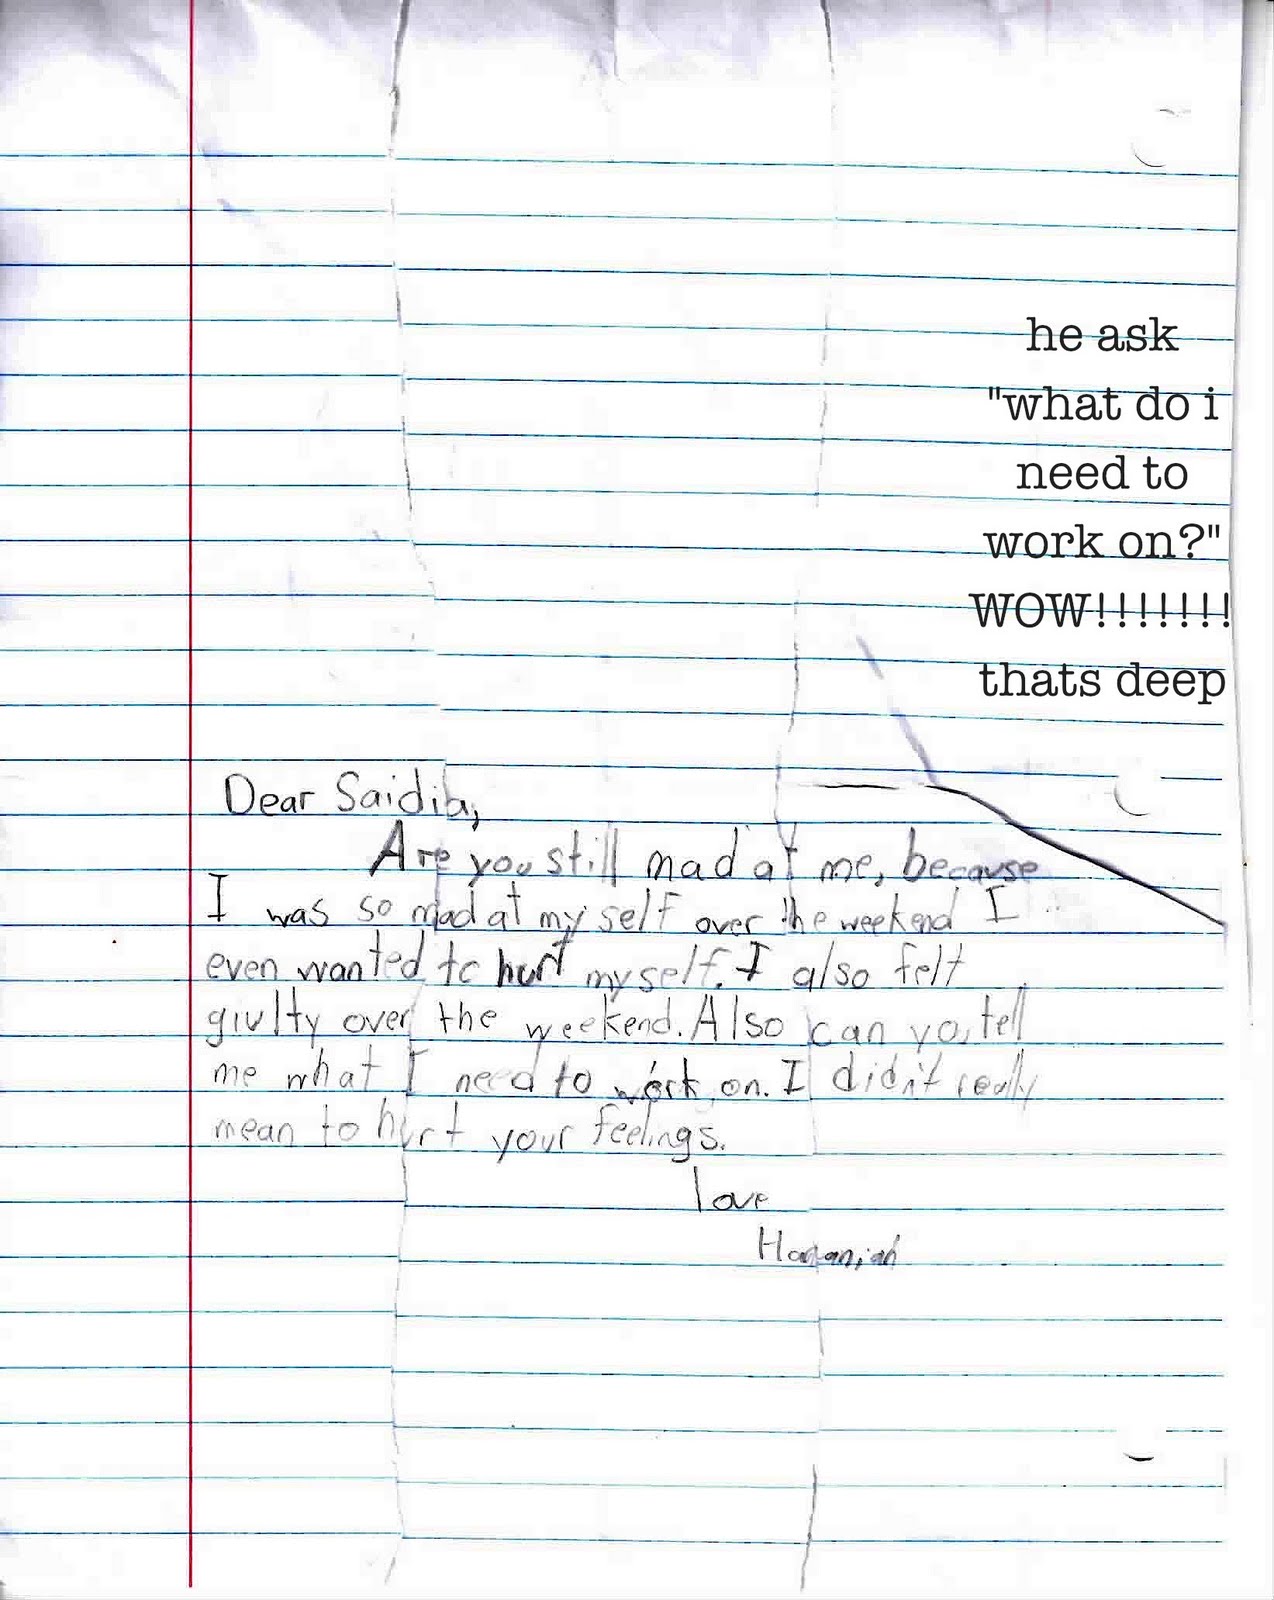 he ask
"what do i
need to
work on?"
WOW!!!!!!!
thats deep
Dear Saidia,
Are you still mad at me, because
I was so mad at my self over the weekend I
even wanted to hurt my self. I also felt
giulty over the weekend. Also can you tell
me what I need to work on. I didn't really
mean to hurt your feelings.
love
Hananiah